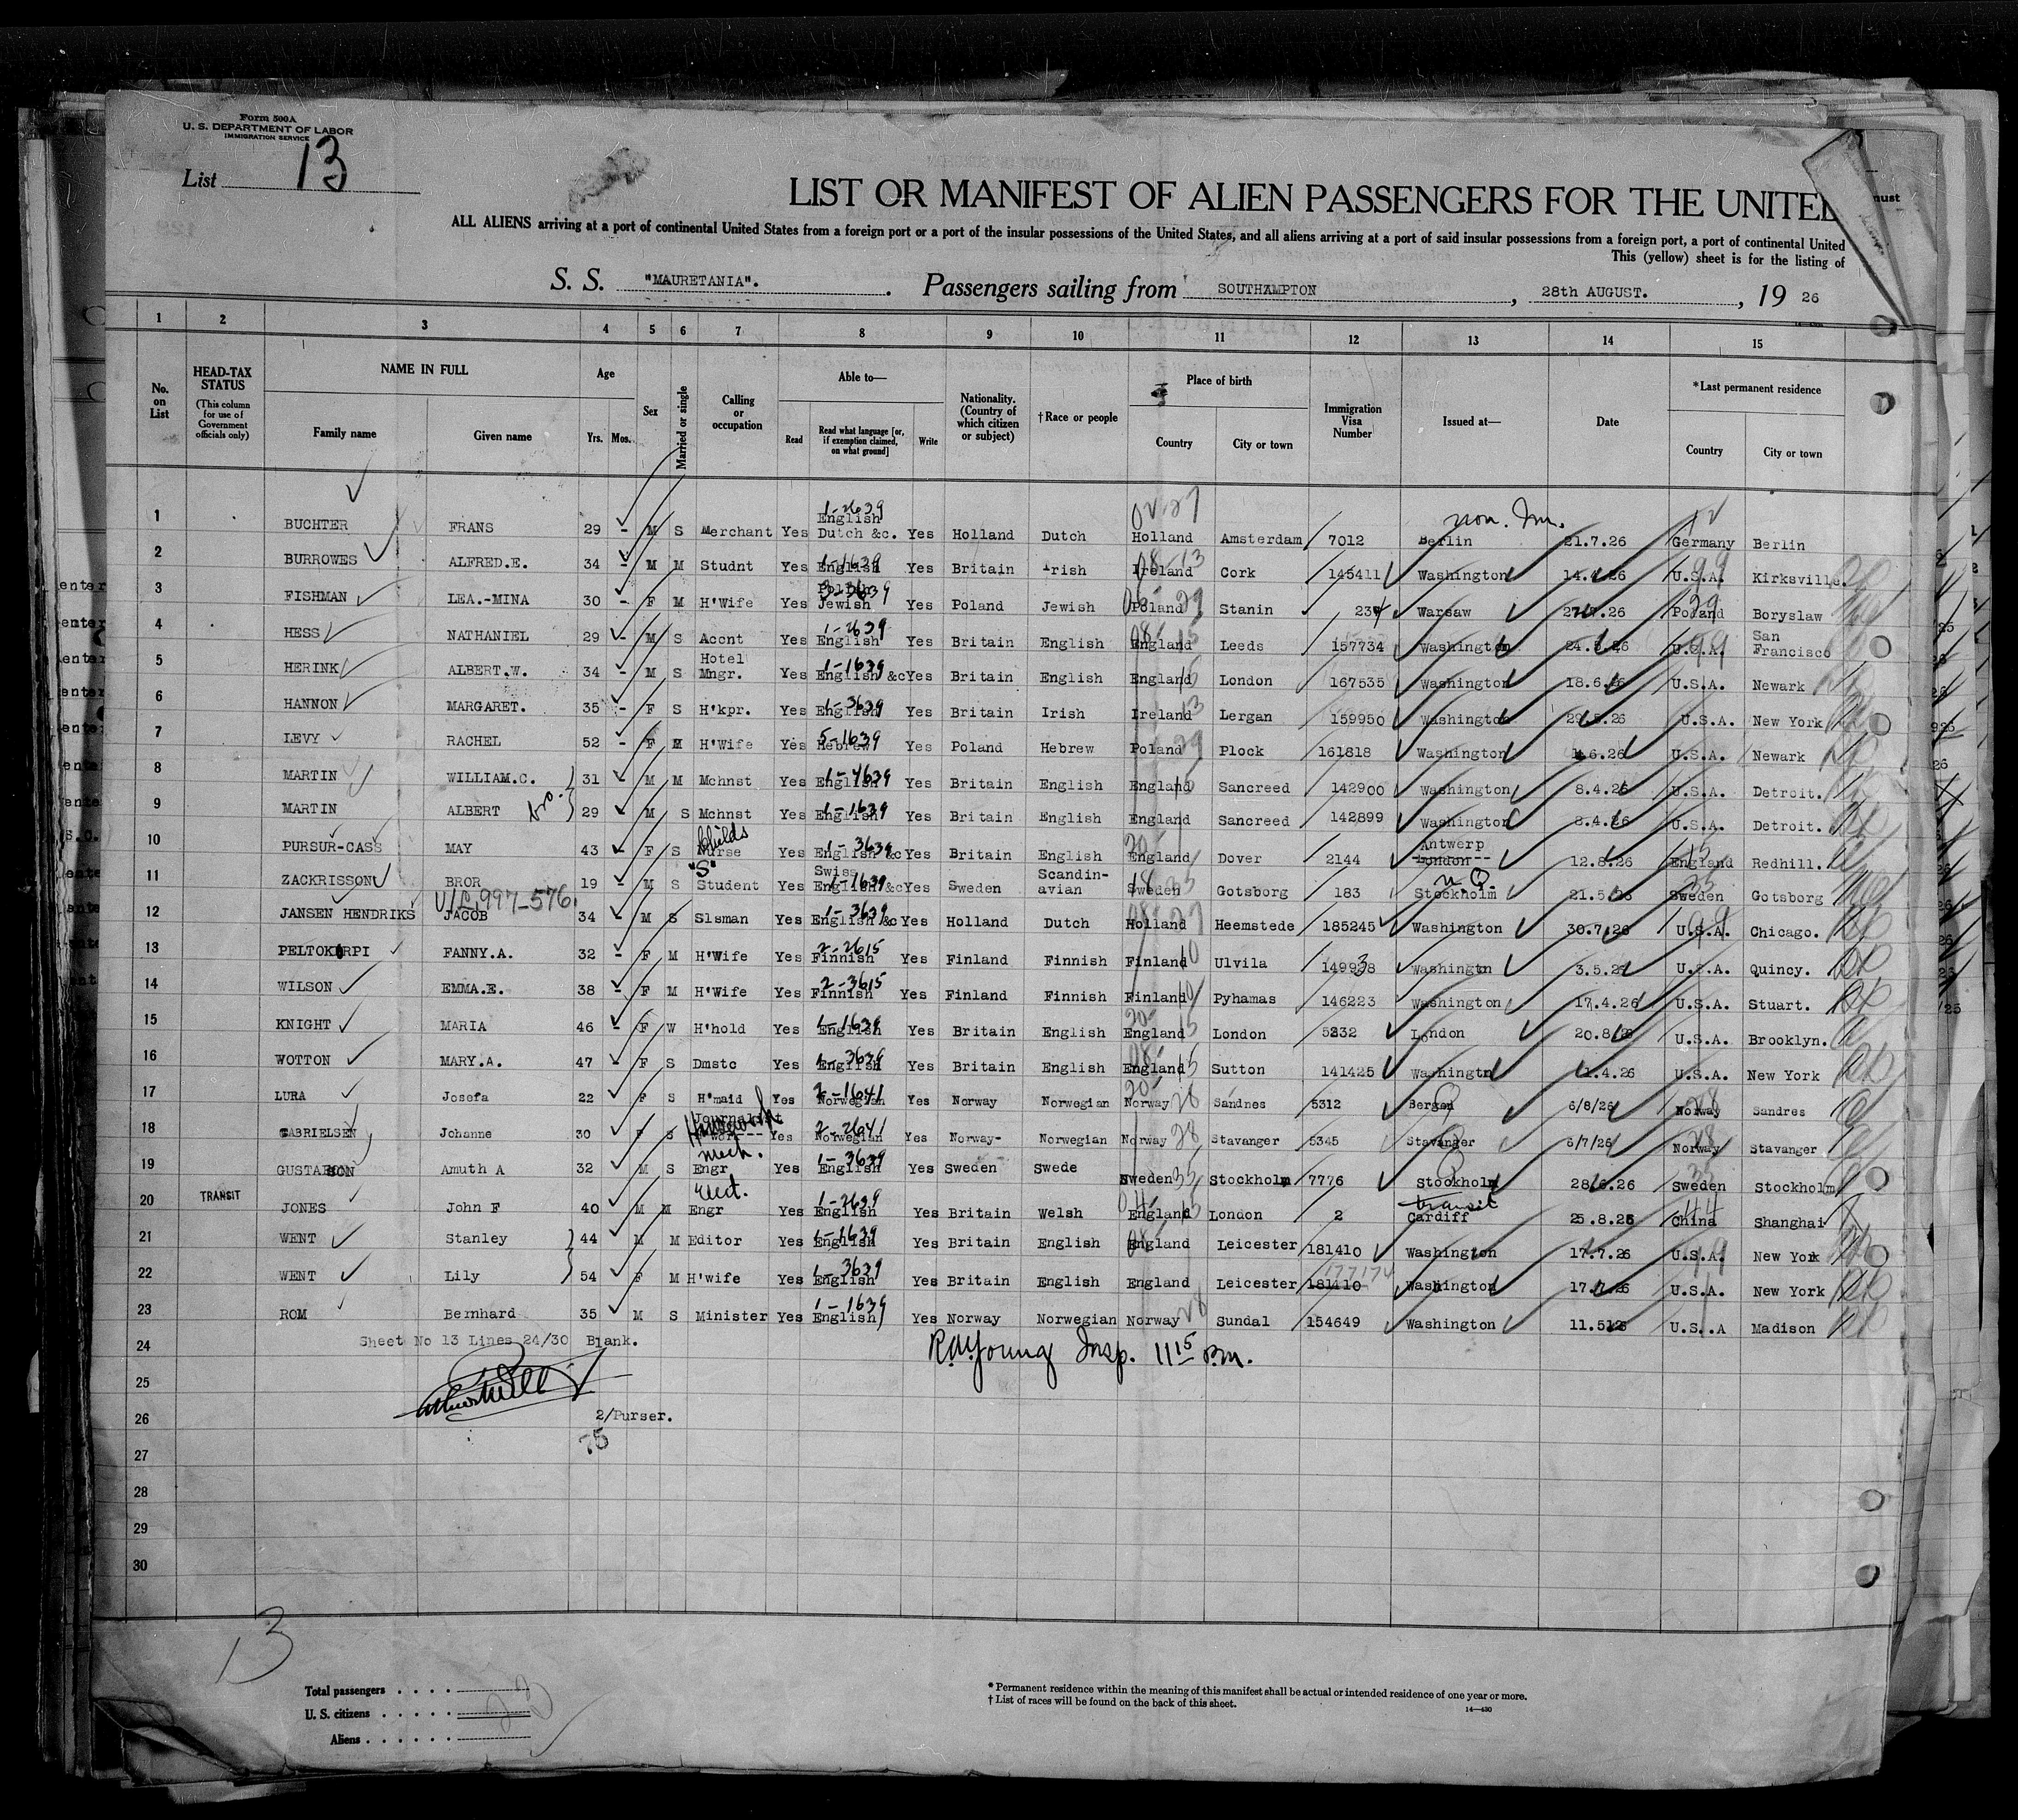 Form 500A
U. S. DEPARTMENT OF LABOR
IMMIGRATION SERVICE
List 13
LIST OR MANIFEST OF ALIEN PASSENGERS FOR THE UNITED
ALL ALIENS arriving at a port of continental United States from a foreign port or a port of the insular possessions of the United States, and all aliens arriving at a port of said insular possessions from a foreign port, a port of continental United
This (yellow) sheet is for the listing of
S. S. "MAURETANIA". Passengers sailing from SOUTHAMPTON, 28th AUGUST., 19 26
1 2 3 4 5 6 7 8 9 10 11 12 13 14 15
No. on List HEAD-TAX STATUS (This column for use of Government officials only) NAME IN FULL Family name Given name Age Yrs. Mos. Sex Married or single Calling or occupation Able to— Read Read what language [or, if exemption claimed, on what ground] Write Nationality. (Country of which citizen or subject) †Race or people Place of birth Country City or town Immigration Visa Number Issued at— Date *Last permanent residence Country City or town
1 BUCHTER FRANS 29 - M S Merchant Yes 1-2639 English Dutch &c. Yes Holland Dutch Holland Amsterdam 7012 non. Im. Berlin 21.7.26 Germany Berlin
2 BURROWES ALFRED.E. 34 - M M Studnt Yes 1-1639 English Yes Britain Irish Ireland Cork 145411 Washington 14.4.26 U.S.A. Kirksville.
3 FISHMAN LEA.-MINA 30 - F M H'Wife Yes Polish Jewish Yes Poland Jewish Poland Stanin Warsaw Poland Boryslaw
4 HESS NATHANIEL 29 - M S Accnt Yes 1-2639 English Yes Britain English England Leeds 157734 Washington 24.5.26 U.S.A. San Francisco
5 HERINK ALBERT.W. 34 - M S Hotel Mngr. Yes 1-1639 English &c Yes Britain English England London 167535 Washington 18.6.26 U.S.A. Newark
6 HANNON MARGARET. 35 - F S H'kpr. Yes 1-3639 English Yes Britain Irish Ireland Lergan 159950 Washington 29.5.26 U.S.A. New York
7 LEVY RACHEL 52 - F M H'Wife Yes 5-1639 Hebrew Yes Poland Hebrew Poland Plock 161818 Washington U.S.A. Newark
8 MARTIN WILLIAM.C. 31 - M M Mchnst Yes 1-4639 English Yes Britain English England Sancreed 142900 Washington 8.4.26 U.S.A. Detroit.
9 MARTIN ALBERT bro. 29 M S Mchnst Yes 1-1639 English Yes Britain English England Sancreed 142899 Washington 8.4.26 U.S.A. Detroit.
10 PURSUR-CASS MAY 43 - F S Childs Nurse Yes 1-3639 English &c Yes Britain English England Dover 2144 Antwerp London 12.8.26 England Redhill.
11 ZACKRISSON BROR 19 - M S "S" Student Yes Swiss 1-1639 English &c Yes Sweden Scandin-avian Sweden Gotsborg 183 Stockholm 21.5.26 Sweden Gotsborg
12 JANSEN HENDRIKS V/L 997-576. JACOB 34 - M S Slsman Yes 1-3639 English &c Yes Holland Dutch Holland Heemstede 185245 Washington 30.7.26 U.S.A. Chicago.
13 PELTOKORPI FANNY.A. 32 - F M H'Wife Yes 2-2615 Finnish Yes Finland Finnish Finland Ulvila 149938 Washingtn 3.5.26 U.S.A. Quincy.
14 WILSON EMMA.E. 38 - F M H'Wife Yes 2-3615 Finnish Yes Finland Finnish Finland Pyhamas 146223 Washington 17.4.26 U.S.A. Stuart.
15 KNIGHT MARIA 46 - F W H'hold Yes 1-1639 English Yes Britain English England London 5232 London 20.8.26 U.S.A. Brooklyn.
16 WOTTON MARY.A. 47 - F S Dmstc Yes 1-3639 English Yes Britain English England Sutton 141425 Washingtn 1.4.26 U.S.A. New York
17 LURA Josefa 22 F S H'maid Yes 2-1641 Norwegian Yes Norway Norwegian Norway Sandnes 5312 Bergen 6/8/26 Norway Sandres
18 GABRIELSEN Johanne 30 F S Journalist Housework Yes 2-2641 Norwegian Yes Norway- Norwegian Norway Stavanger 5345 Stavanger 6/7/26 Norway Stavanger
19 GUSTAFSON Amuth A 32 M S mech. Engr Yes 1-3639 English Yes Sweden Swede Sweden Stockholm 7776 Stockholm 28.6.26 Sweden Stockholm
20 TRANSIT JONES John F 40 M M Elect. Engr Yes 1-2639 English Yes Britain Welsh England London 2 transit Cardiff 25.8.26 China Shanghai
21 WENT Stanley 44 M M Editor Yes 1-1639 English Yes Britain English England Leicester 181410 Washington 17.7.26 U.S.A. New York
22 WENT Lily 54 F M H'wife Yes 1-3639 English Yes Britain English England Leicester 181410 177174 Washington 17.7.26 U.S.A. New York
23 ROM Bernhard 35 M S Minister Yes 1-1639 English Yes Norway Norwegian Norway Sundal 154649 Washington 11.5.26 U.S..A Madison
24 Sheet No 13 Lines 24/30 Blank. R.A.Young Insp. 11 15 p.m.
25
26 2/Purser.
75
27
28
29
30
13
Total passengers
U. S. citizens
Aliens
* Permanent residence within the meaning of this manifest shall be actual or intended residence of one year or more.
† List of races will be found on the back of this sheet.
14—430